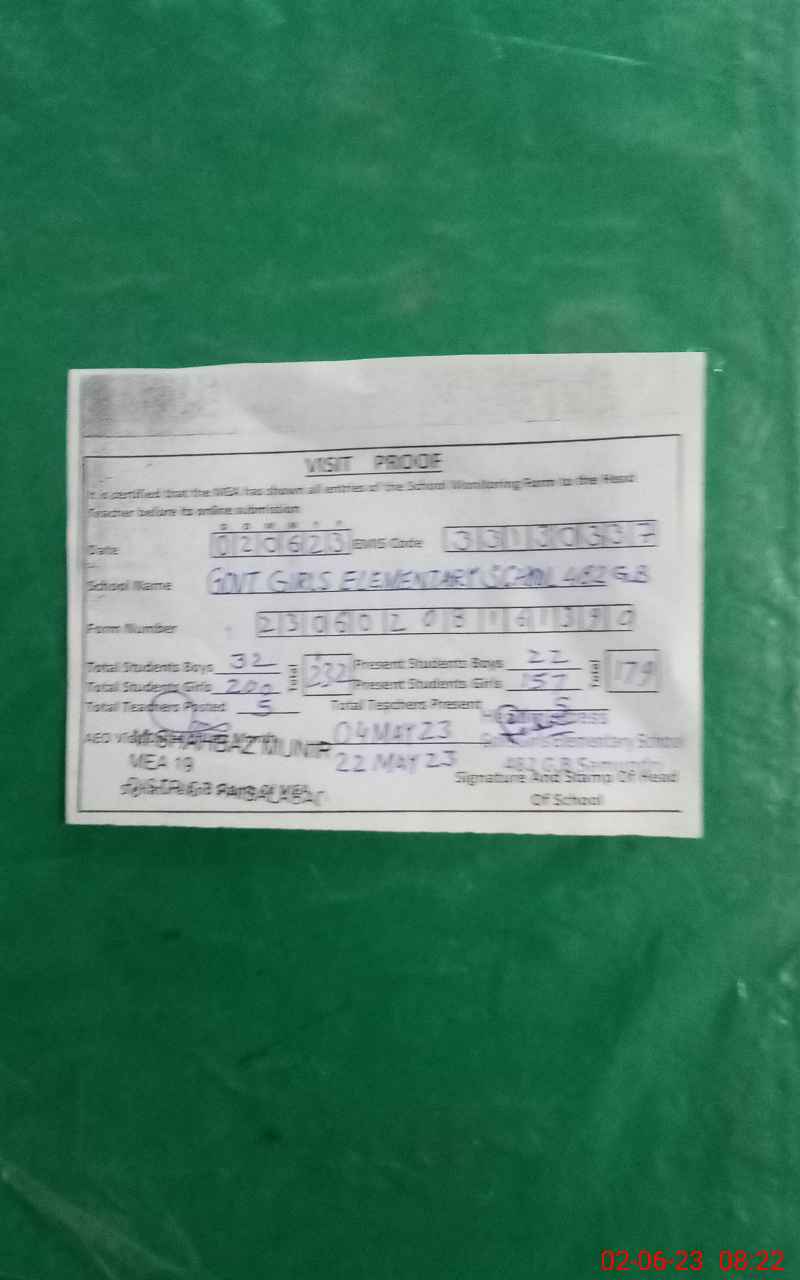 VISIT PROOF
It is certified that the MEA has shown all entries of the School Monitoring Form to the Head
Teacher before its online submission
D D M M Y Y
Date 020623 EMIS Code 33130337
School Name GOVT GIRLS ELEMENTARY SCHOOL 482 G.B
Form Number
Total Students Boys 32 232 Present Students Boys 22 179
Total Students Girls 200 Present Students Girls 157
Total Teachers Posted 5 Total Teachers Present 5
04 MAY 23
SHAHBAZ MUNIR
Girls Elementary School
MEA 19 22 MAY 23 482 G.B
Signature And Stamp Of Head
Of School
02-06-23 08:22